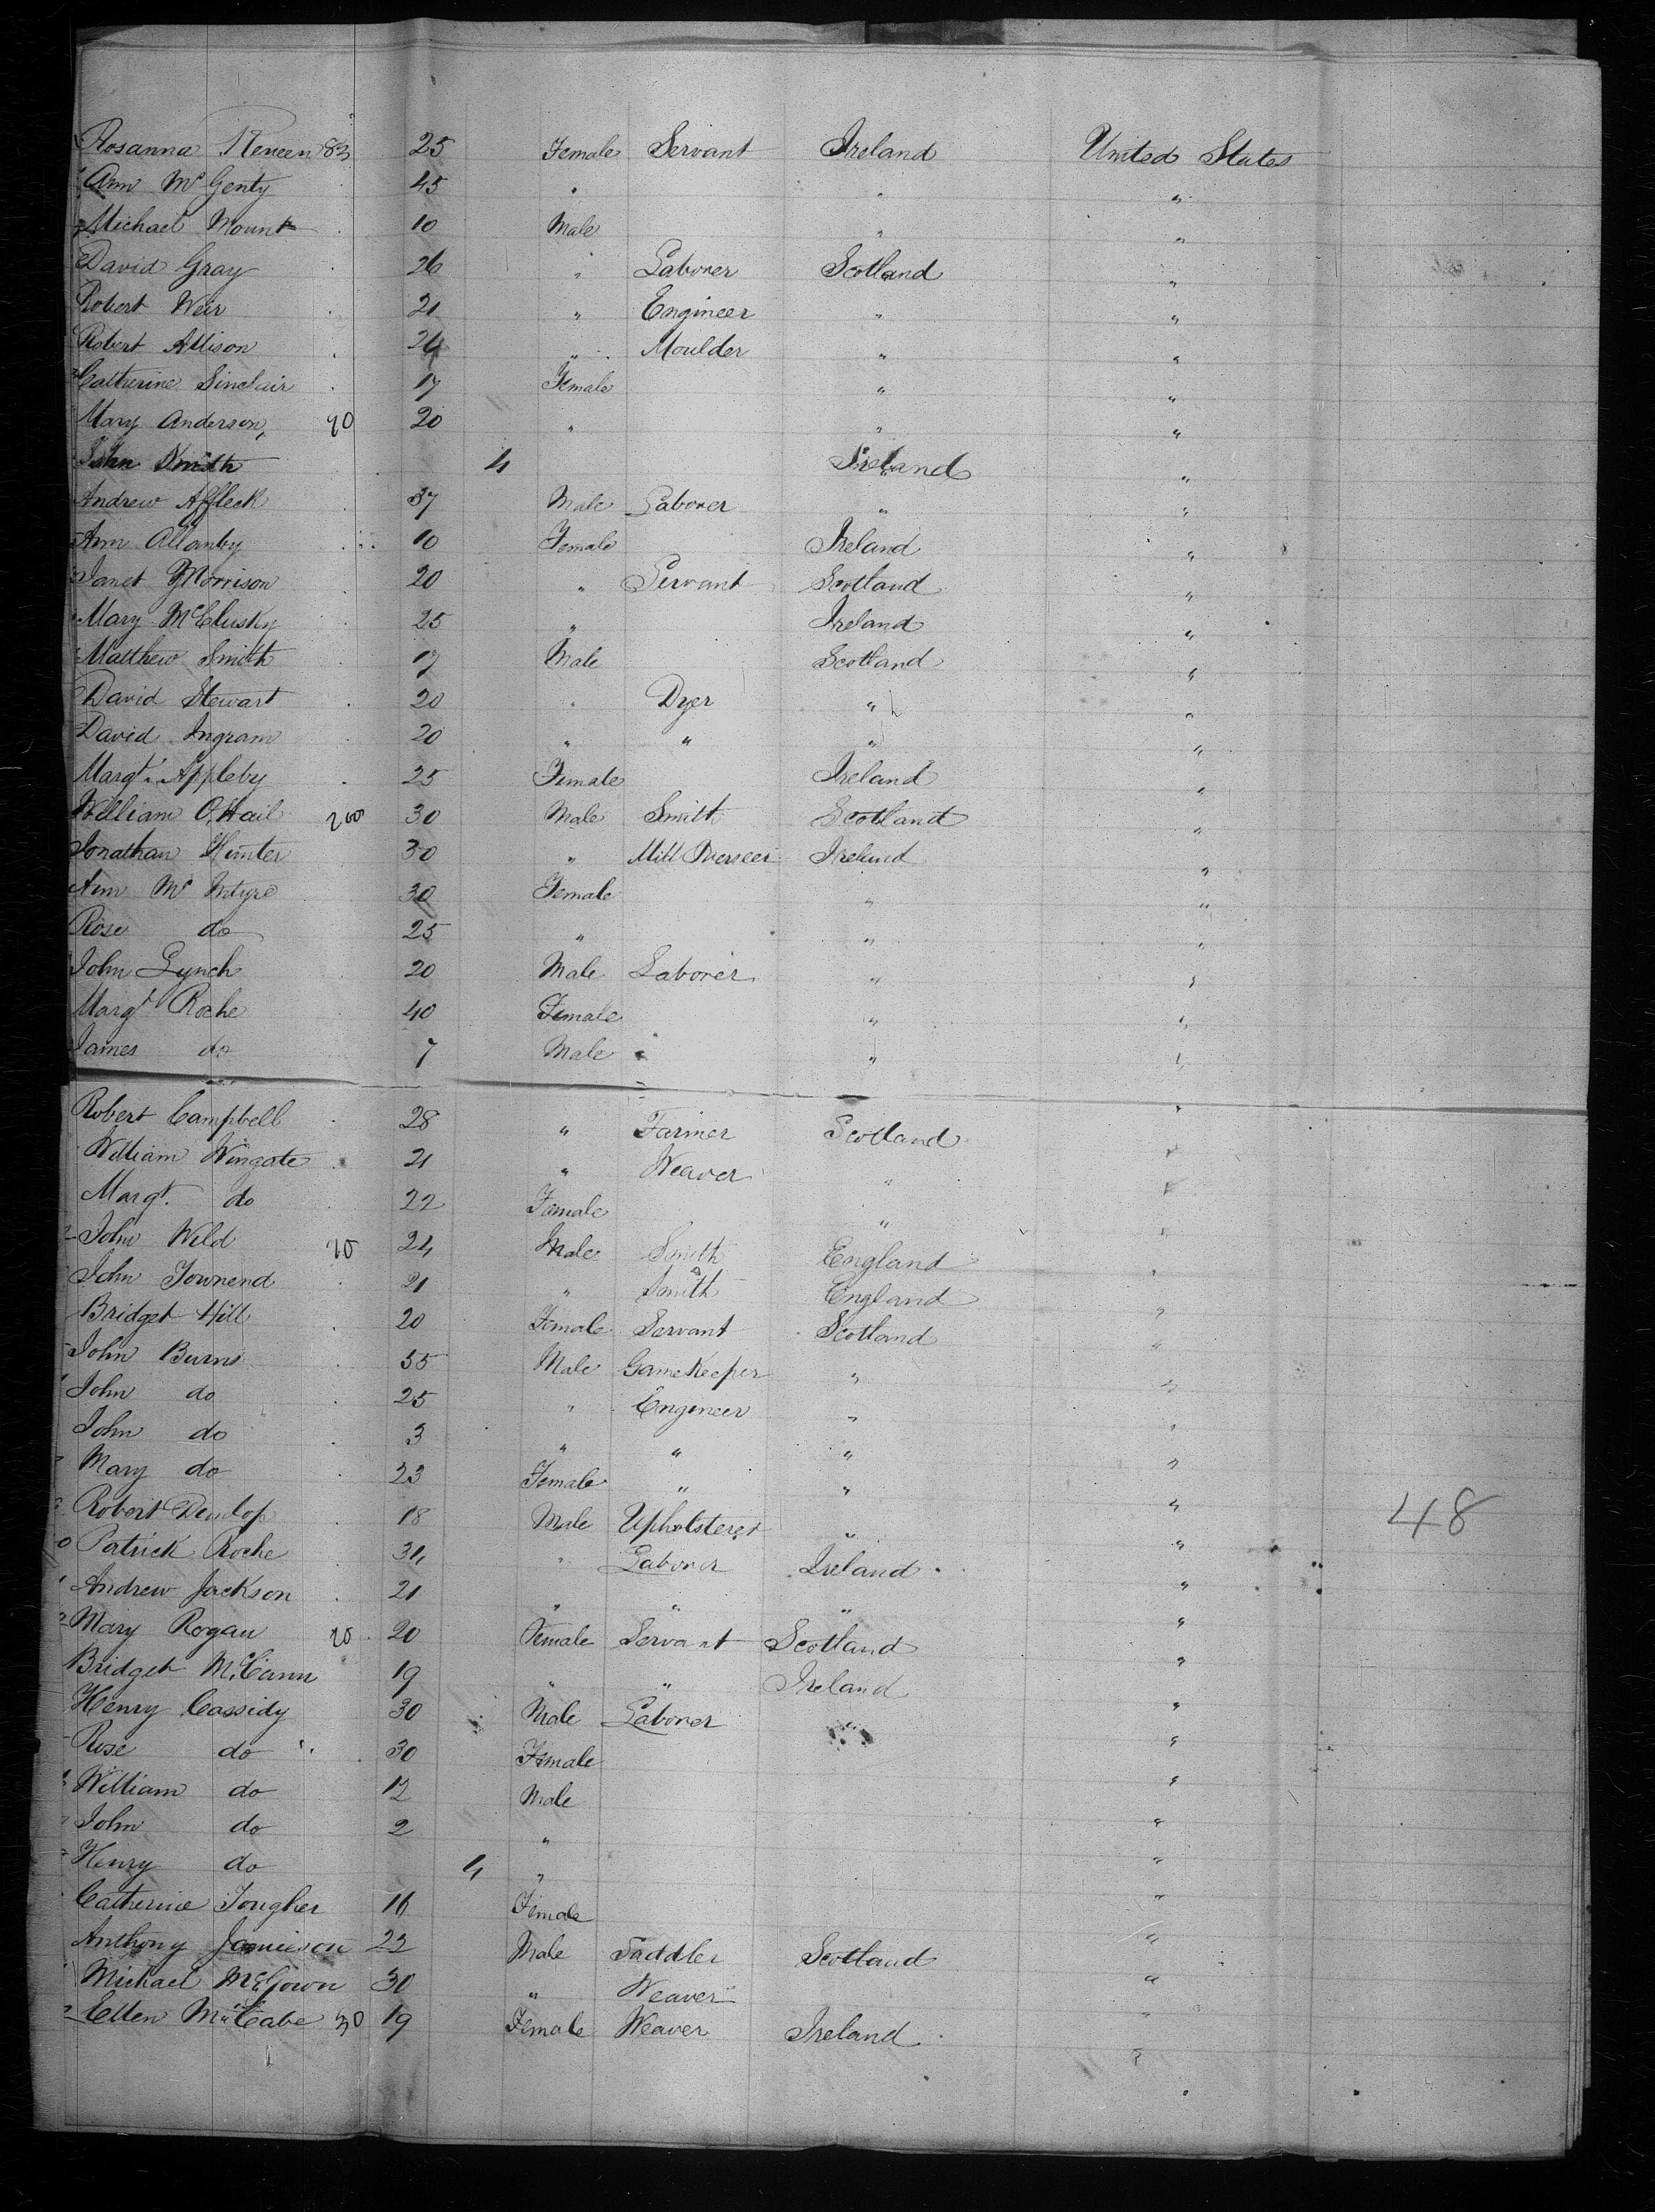 Rosanna Reneen 83 25 Female Servant Ireland United States
Ann Mc Genty 45 " " "
Michael Mount 10 Male " "
David Gray 26 " Laborer Scotland "
Robert Weir 21 " Engineer " "
Robert Allison 24 " Moulder " "
Catherine Sinclair 17 Female " "
Mary Anderson 90 20 " " "
John Smith 4 Ireland "
Andrew Affleck 37 Male Laborer " "
Ann Allanby 10 Female Ireland "
Janet Morrison 20 " Servant Scotland "
Mary McClusky 25 " Ireland "
Matthew Smith 17 Male Scotland "
David Stewart 20 " Dyer " "
David Ingram 20 " " " "
Margt. Appleby 25 Female Ireland "
William O,Hail 200 30 Male Smith Scotland "
Jonathan Hunter 30 " Mill Overseer Ireland "
Ann Mc Intyre 30 Female " "
Rose do 25 " " "
John Lynch 20 Male Laborer " "
Margt Roche 40 Female " "
James do 7 Male " "
Robert Campbell 28 " Farmer Scotland "
William Wingate 21 " Weaver " "
Margt. do 22 Female " "
John Wild 24 Male Smith England "
John Townend 21 " Smith England "
Bridget Hill 20 Female Servant Scotland "
John Burns 55 Male GameKeeper " "
John do 25 " Engineer " "
John do 3 " " " "
Mary do 23 Female " " "
Robert Dunlop 18 Male Upholsterer " " 48
Patrick Roche 34 " Laborer Ireland "
Andrew Jackson 21 " " " "
Mary Rogan 20 Female Servant Scotland "
Bridget McCann 19 " " Ireland "
Henry Cassidy 30 Male Laborer " "
Rose do 30 Female "
William do 12 Male "
John do 2 " "
Henry do 4 " "
Catherine Tougher 16 Female "
Anthony Jamieson 22 Male Saddler Scotland "
Michael McGown 30 " Weaver "
Ellen McCabe 30 19 Female Weaver Ireland "